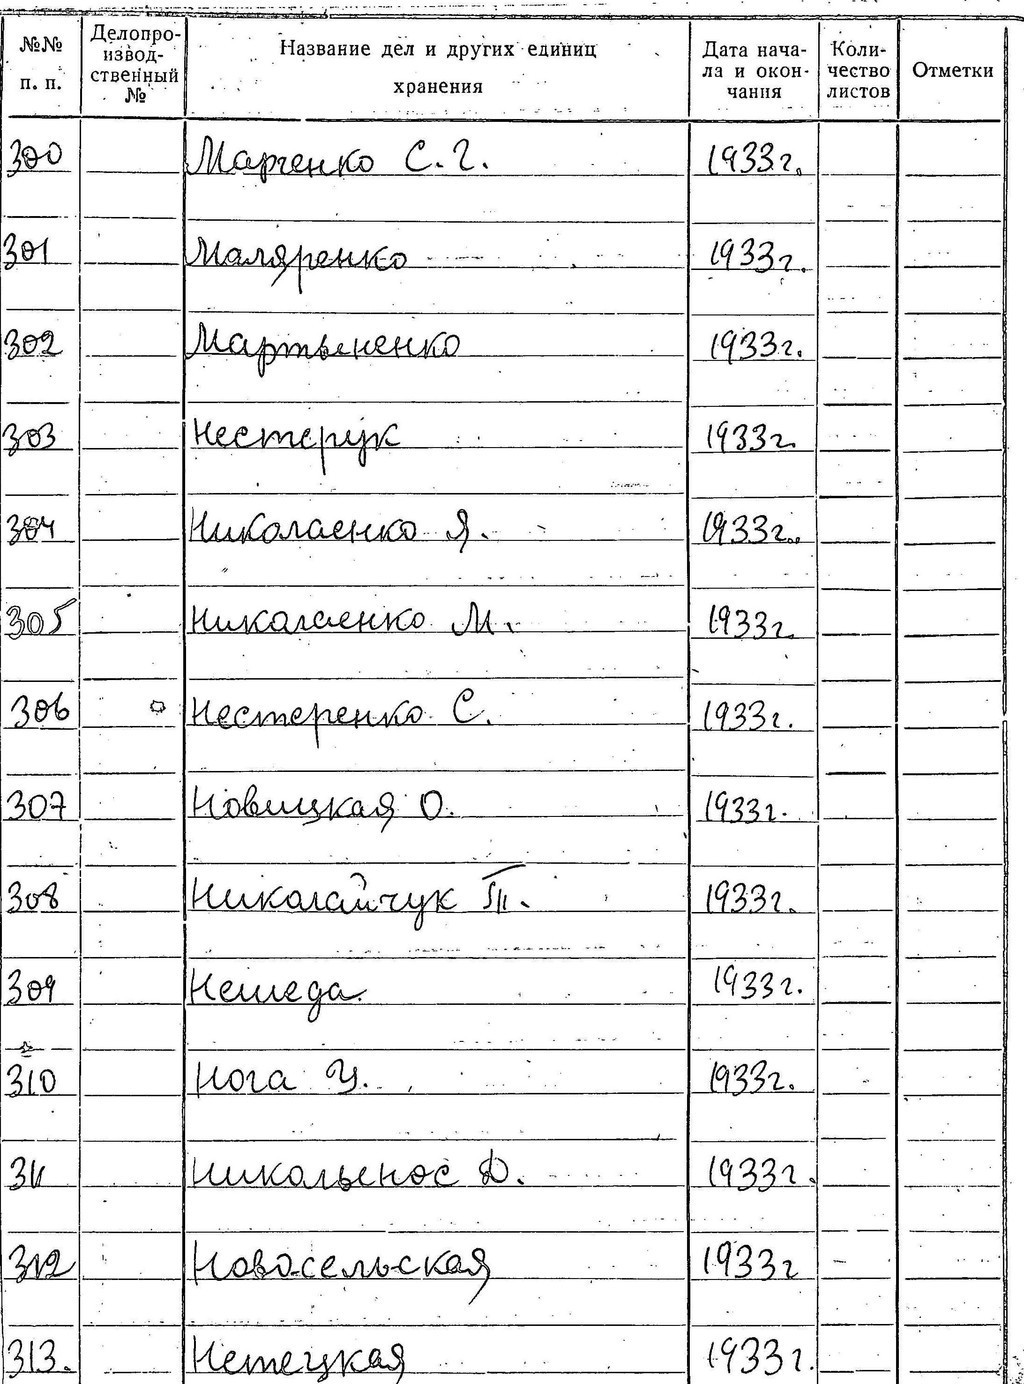 №№ п. п. Делопроизводственный № Название дел и других единиц хранения Дата начала и окончания Количество листов Отметки
300 Марченко С. Г. 1933г.
301 Маляренко 1933г.
302 Мартыненко 1933г.
303 Нестерук 1933г.
304 Николаенко Я. 1933г.
305 Николаенко М. 1933г.
306 Нестеренко С. 1933г.
307 Новицкая О. 1933г.
308 Николайчук П. 1933г.
309 Нешеда 1933г.
310 Нога У. 1933г.
311 Никольенос Д. 1933г.
312 Новосельская 1933г
313. Нетецкая 1933г.